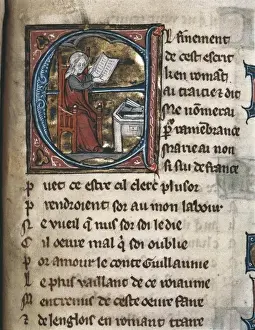 El finement
de cest escrit
kien romanz
ai traitie et dit
Me nomerai
par ramenbrance
Marie ai non
si sui de france
P uet cestre cil clerc plusor
P rendroient sor aus mon labour
N e vueil q nus sor soi le die
C il oeure mal q soi oublie
P or amour le conte Guillaume
L e plus vaillant de ce roiaume
M entremis de ceste oeure faire
E t de lenglois en romanz traire